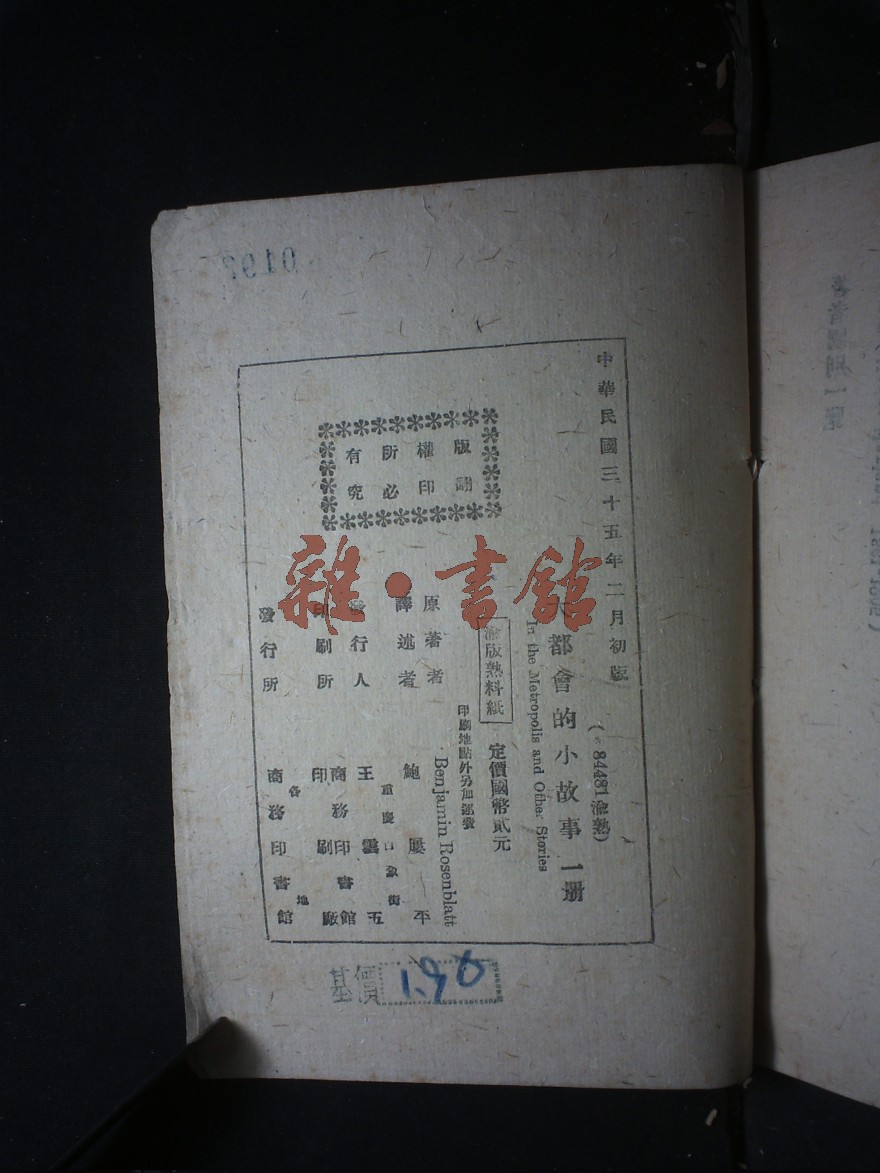 中華民國三十五年二月初版
(84481渝熱)
大都會的小故事一册
In the Metropolis and Other Stories
渝版熟料紙
定價國幣貳元
印刷地點外另加運費
版權所有
翻印必究
原著者 Benjamin Rosenblatt
譯述者 鮑屢平
重慶白象街
發行人 王雲五
印刷所 商務印書館
印刷廠
各地
發行所 商務印書館
基價 190
雜·書館
著者國別一覽